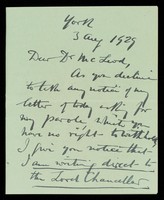 York
3 Aug 1929
Dear Dr McLeod,
As you decline
to take any notice of my
letter of today asking for
my parole which you
have no right to withhold
I give you notice that
I am writing direct to
the Lord Chancellor